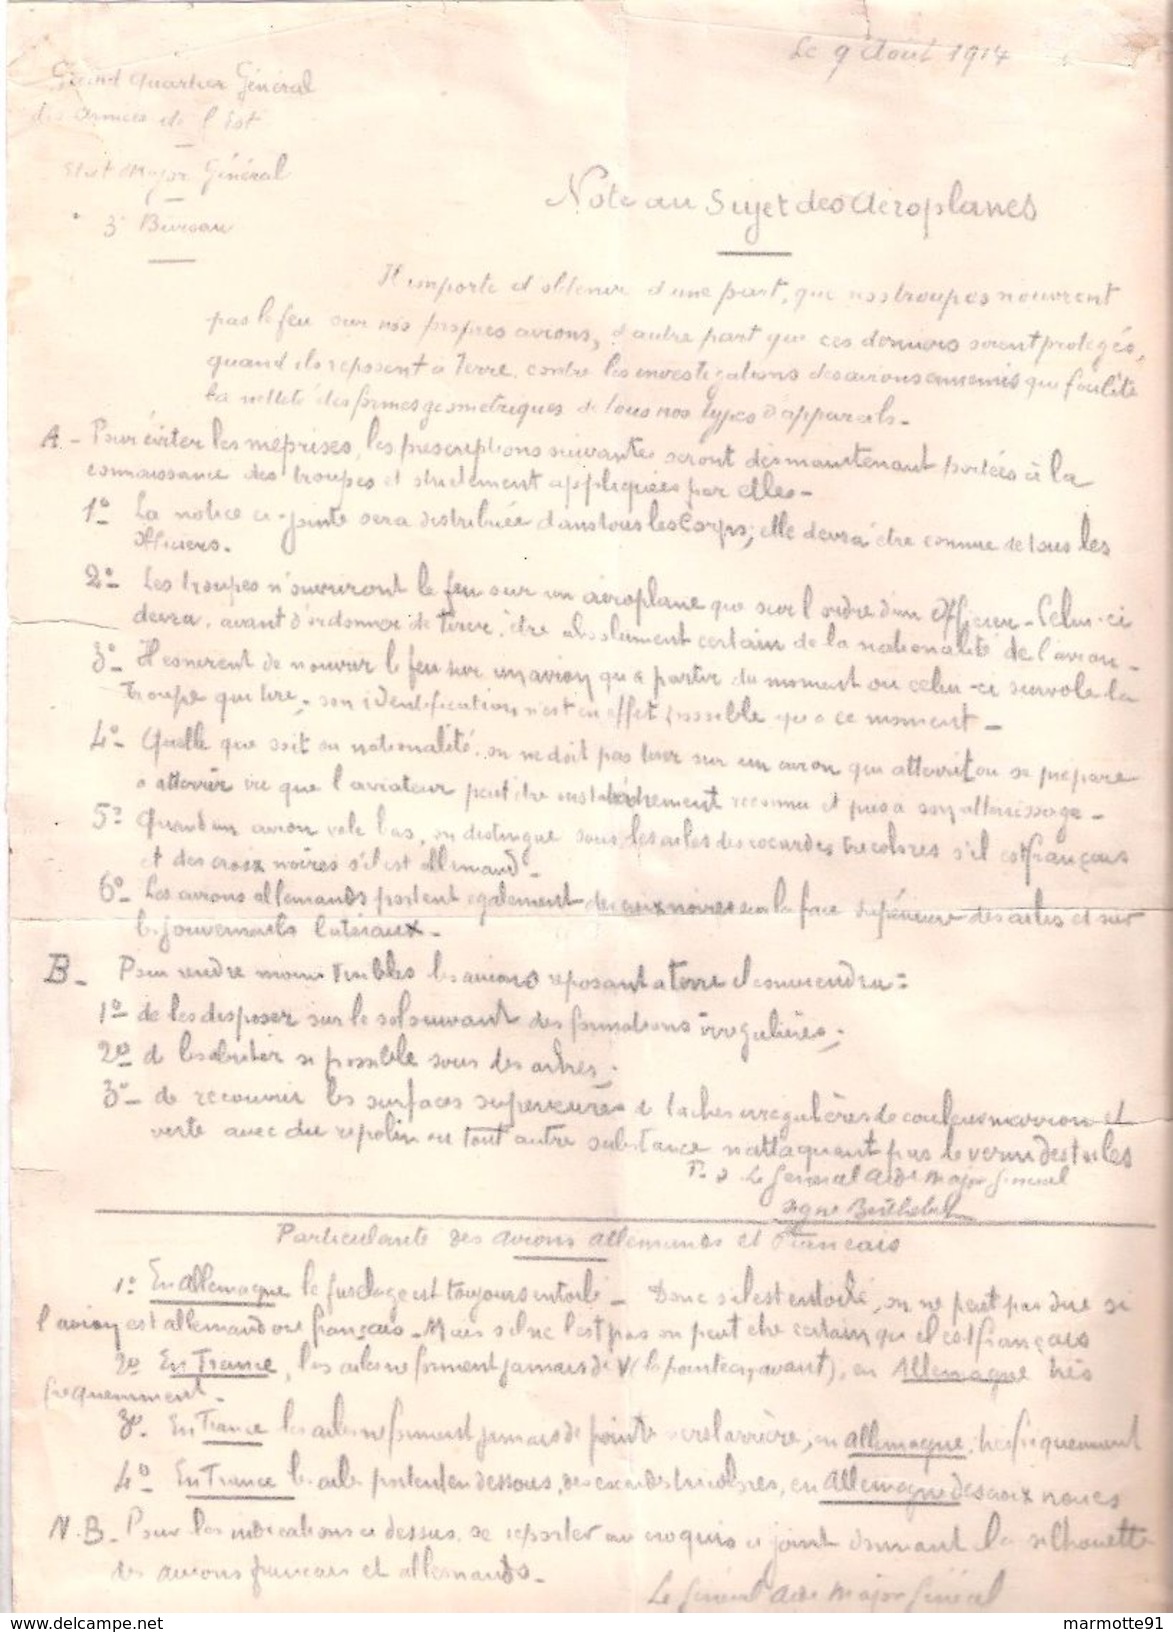 Le 9 Août 1914
Grand Quartier Général
des Armées de l'Est
Etat Major Général
3e Bureau
Note au Sujet des Aéroplanes
Il importe d'obtenir d'une part, que nos troupes n'ouvrent
pas le feu sur nos propres avions, d'autre part que ces derniers soient protégés,
quand ils reposent à Terre, contre les investigations des avions ennemis que facilite
la netteté des formes géométriques de tous nos types d'appareils.-
A.- Pour éviter les méprises, les prescriptions suivantes seront dès maintenant portées à la
connaissance des troupes et strictement appliquées par elles-
1º- La notice ci-jointe sera distribuée dans tous les Corps; elle devra être connue de tous les
Officiers.
2º- Les troupes n'ouvriront le feu sur un aéroplane que sur l'ordre d'un Officier- Celui-ci
devra, avant d'ordonner de tirer, être absolument certain de la nationalité de l'avion-
3º- Il convient de n'ouvrir le feu sur un avion qu'à partir du moment où celui-ci survole la
Troupe qui tire; son identification n'est en effet possible qu'à ce moment-
4º- Quelle que soit sa nationalité, on ne doit pas tirer sur un avion qui atterrit ou se prépare
à atterrir vu que l'aviateur peut être instantanément reconnu et pris à son atterrissage-
5º- Quand un avion vole bas, on distingue sous les ailes des cocardes tricolores s'il est français
et des croix noires s'il est allemand-
6º- Les avions allemands portent également des croix noires sur la face supérieure des ailes et sur
les gouvernails latéraux-
B- Pour rendre moins visibles les avions reposant à terre il conviendra:
1º- de les disposer sur le sol suivant des formations irrégulières;
2º- de les abriter si possible sous des arbres;
3º- de recouvrir les surfaces supérieures de taches irrégulières de couleur marron et
verte avec du ripolin ou tout autre substance n'attaquant pas le vernis des toiles
P. o Le Général Aide Major Général
signé Berthelot
Particularité des avions allemands et Français
1º En Allemagne le fuselage est toujours entoilé- Donc s'il est entoilé, on ne peut pas dire si
l'avion est allemand ou français- Mais s'il ne l'est pas on peut être certain qu'il est français
2º En France, les ailes ne forment jamais de V (la pointe en avant), en Allemagne très
fréquemment-
3º- En France les ailes ne forment jamais de pointe vers l'arrière, en Allemagne, très fréquemment
4º- En France les ailes portent en dessous, des cocardes tricolores, en Allemagne des croix noires
N.B- Pour les indications ci dessus, se reporter au croquis ci joint donnant la silhouette
des avions français et allemands-
Le Général Aide Major Général
marmotte91